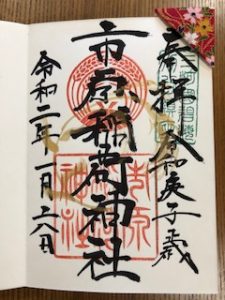 奉拝 令和庚子歳
市原稲荷神社
令和二年一月二六日